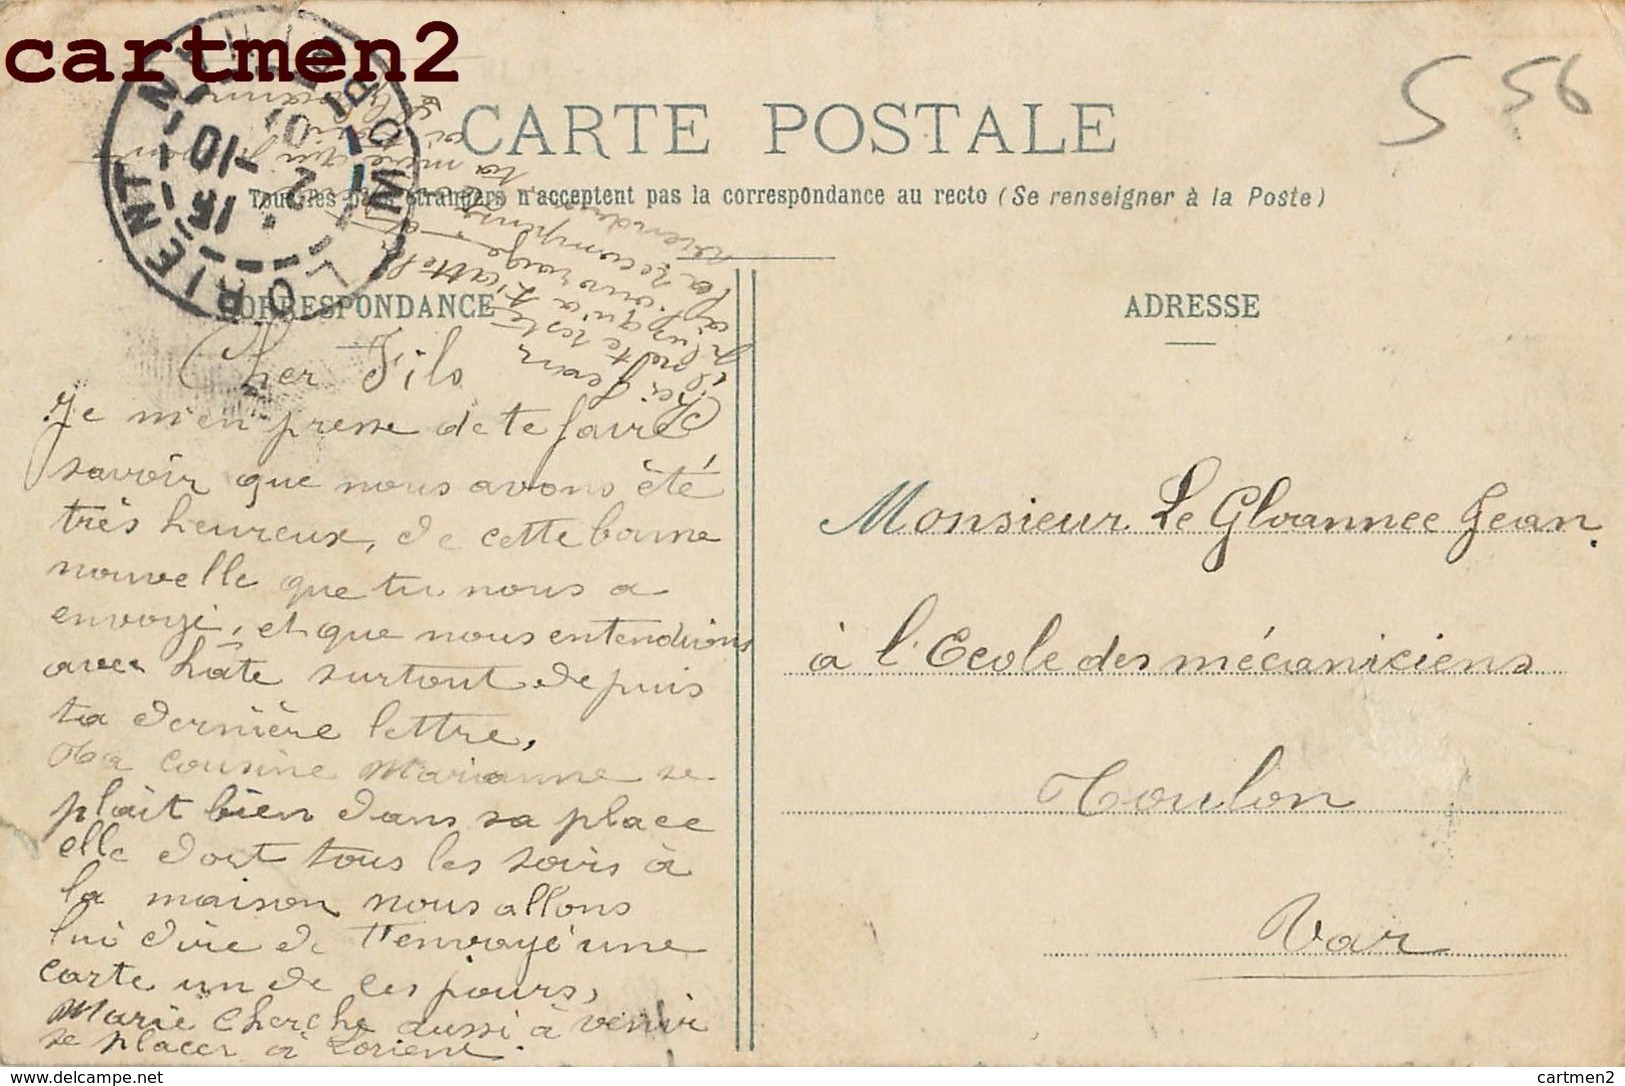 cartmen2
S 56
CARTE POSTALE
Tous les pays étrangers n'acceptent pas la correspondance au recto (Se renseigner à la Poste)
LORIENT
MORBIHAN
15
2 -10
CORRESPONDANCE
Cher Fils
Je m'en presse de te faire
savoir que nous avons été
très heureux, de cette bonne
nouvelle que tu nous a
envoyé, et que nous entendions
avec hâte surtout depuis
ta dernière lettre,
Ta cousine Marianne se
plait bien dans sa place
elle dort tous les soirs à
la maison nous allons
lui dire de t'envoyé une
carte un de ces jours,
Marie cherche aussi à venir
se placer à Lorient.
Cher Jean
il ne te reste
plus qu'a t'atteler
à l'ouvrage et
la récompense
viendra
ta mère
ADRESSE
Monsieur Le Gloannec Jean.
à l'Ecole des mécaniciens
Toulon
Var
www.delcampe.net
cartmen2